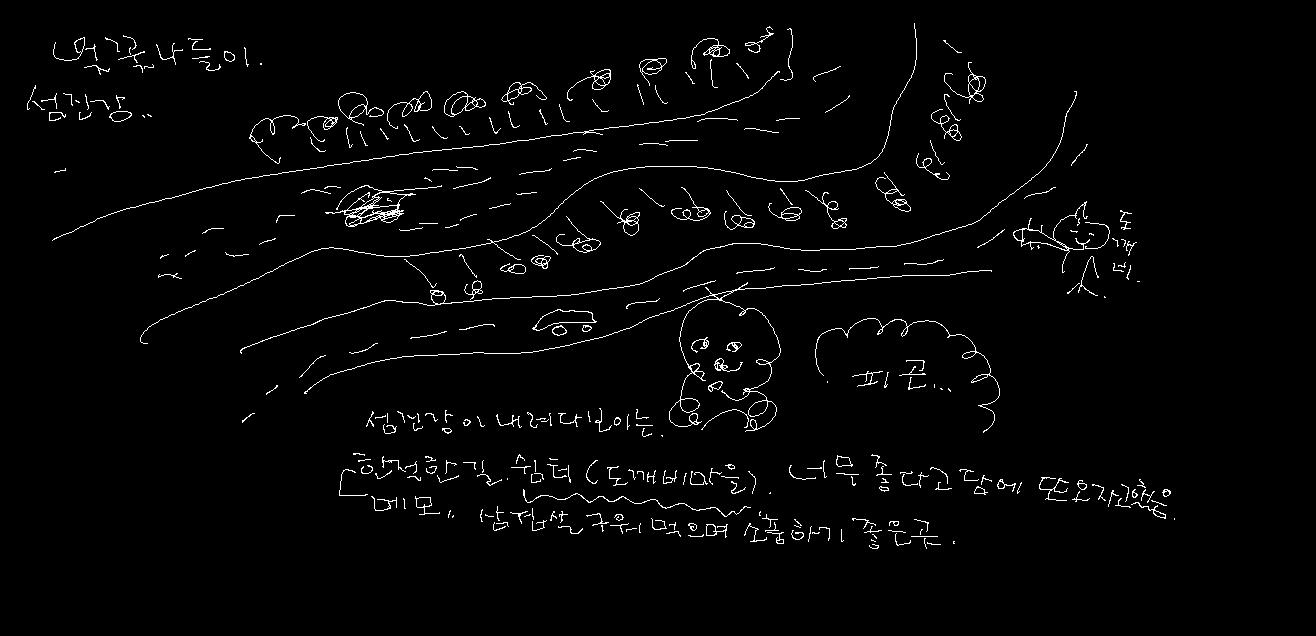 벚꽃나들이.
섬진강..
도깨비.
피곤...
섬진강이 내려다보이는.
한적한길.쉼터(도깨비마을). 너무 좋다고 담에 또오자고했음.
메모.. 삼겹살 구워 먹으며 소풍하기 좋은곳.